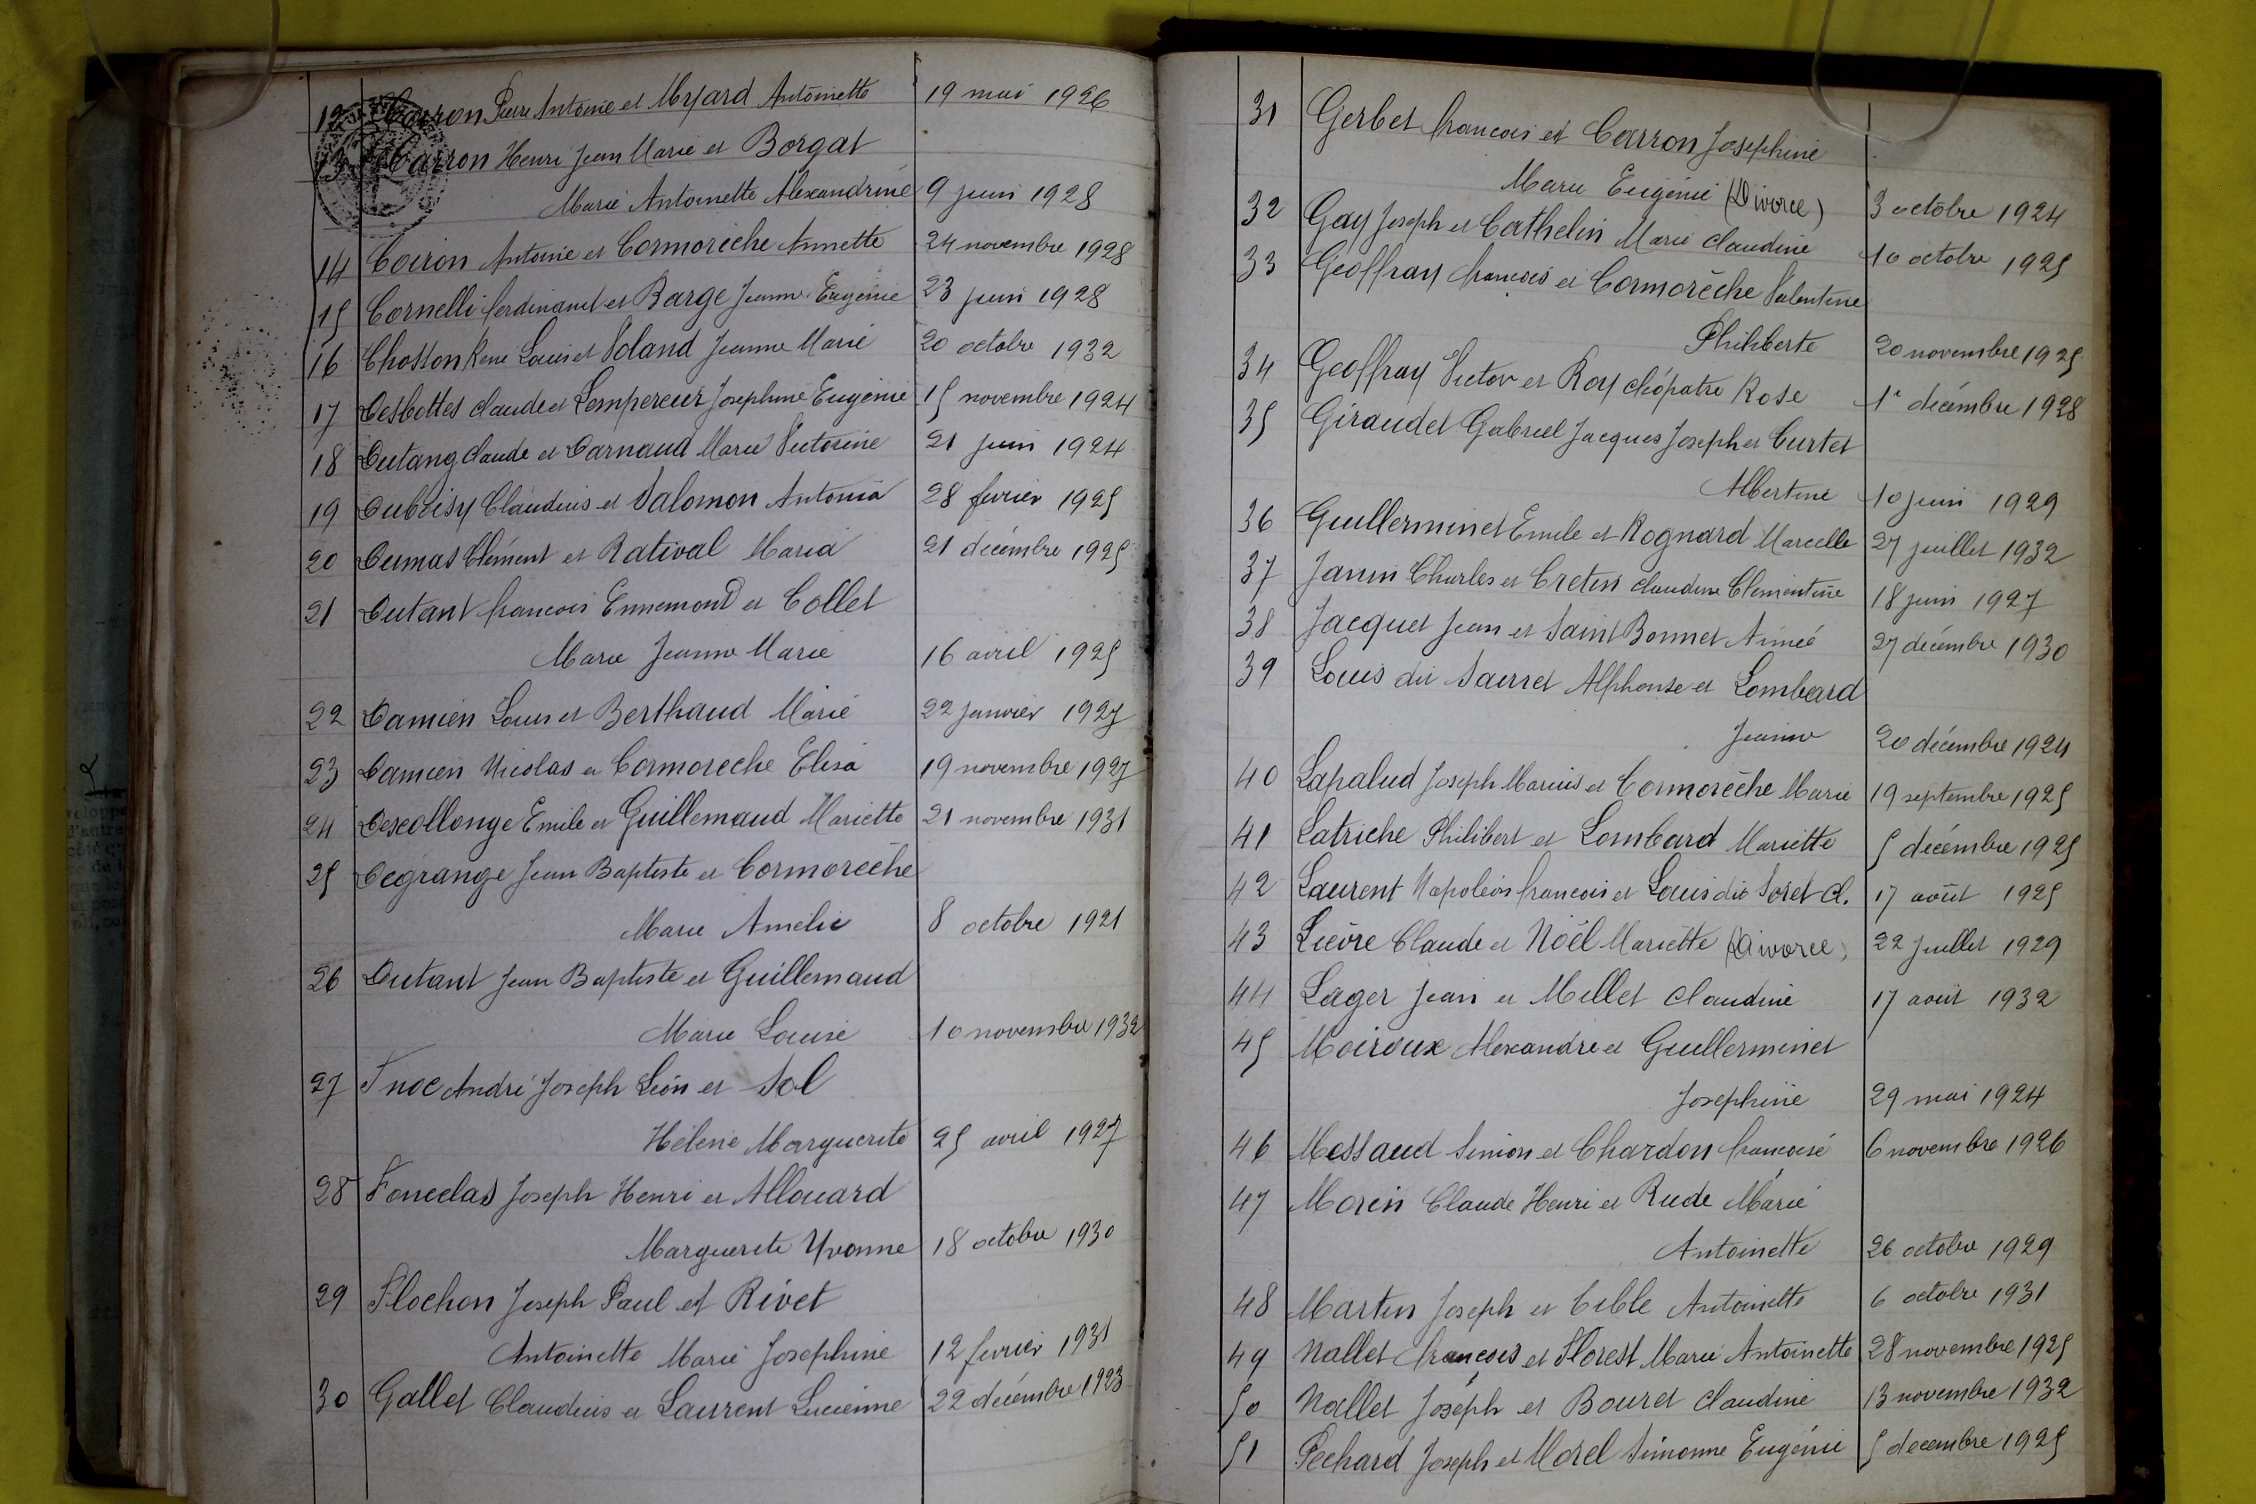 12 Carron Pierre Antoine et Myard Antoinette 19 mai 1926
13 Carron Henri Jean Marie et Borgat
Marie Antoinette Alexandrine 9 juin 1928
14 Coiron Antoine et Cormorèche Annette 24 novembre 1928
15 Cornelli ferdinand et Barge Jeanne Eugénie 23 juin 1928
16 Chosson Rene Louis et Voland Jeanne Marie 20 octobre 1932
17 Desbottes claude et Lempereur Josephine Eugénie 15 novembre 1924
18 Dutang claude et Darnaud Marie Victorine 21 juin 1924
19 Duboisy Claudius et Salomon Antonia 28 fevrier 1925
20 Dumas Clément et Ratival Maria 21 décembre 1925
21 Dutant francois Ennemond et Collet
Marie Jeanne Marie 16 avril 1925
22 Damien Louis et Berthaud Marie 22 janvier 1927
23 Damien Nicolas et Cormoreche Elisa 19 novembre 1927
24 Descollonge Emile et Guillemaud Mariette 21 novembre 1931
25 Degrange Jean Baptiste et Cormorèche
Marie Amelie 8 octobre 1921
26 Dutant Jean Baptiste et Guillemaud
Marie Louise 10 novembre 1932
27 Fnoc André Joseph Léon et Sol
Hélène Marguerite 25 avril 1927
28 Fonclas Joseph Henri et Allouard
Marguerite Yvonne 18 octobre 1930
29 Flochon Joseph Paul et Rivet
Antoinette Marie Josephine 12 fevrier 1931
30 Gallet Claudius et Laurent Lucienne 22 décembre 1923
31 Gerbet francois et Carron Josephine
Marie Eugénie (Divorce) 3 octobre 1924
32 Gay Joseph et Cathelin Marie claudine 10 octobre 1925
33 Geoffray francois et Cormorèche Valentine
Philiberte 20 novembre 1925
34 Geoffray Victor et Roy cléopatre Rose 1er décembre 1928
35 Giraudet Gabriel Jacques Joseph et Curtet
Albertine 10 juin 1929
36 Guillerminet Emile et Rognard Marcelle 27 juillet 1932
37 Janin Charles et Cretin claudine Clementine 18 juin 1927
38 Jacquet Jean et Saint Bonnet Aimée 27 décembre 1930
39 Louis dit Saurret Alphonse et Lombard
Jeanne 20 décembre 1924
40 Lapalud Joseph Marius et Cormorèche Marie 19 septembre 1925
41 Latriche Philibert et Lombard Mariette 5 décembre 1925
42 Laurent Napoléon francois et Louis dit Soret Cl. 17 août 1925
43 Lièvre Claude et Noël Mariette (Divorce) 22 juillet 1929
44 Lager Jean et Millet claudine 17 août 1932
45 Moiroux Alexandre et Guillerminet
Josephine 29 mai 1924
46 Messaud Simon et Chardon francoise 6 novembre 1926
47 Morin Claude Henri et Rude Marie
Antoinette 26 octobre 1929
48 Martin Joseph et Cible Antoinette 6 octobre 1931
49 Nallet françois et Florest Marie Antoinette 28 novembre 1925
50 Nallet Joseph et Bouret claudine 13 novembre 1932
51 Pechard Joseph et Morel Simonne Eugénie 5 decembre 1925